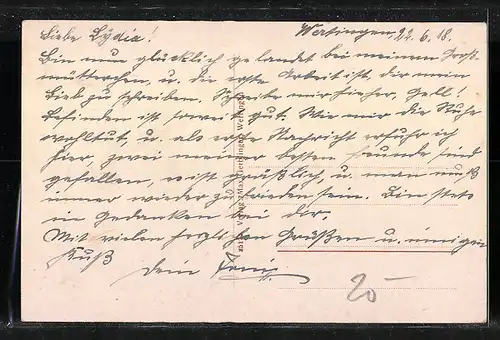 Wertingen 22.6.18.
Liebe Lydia!
Bin nun glücklich gelandet bei meinem Groß-
mütterchen, u. die erste Arbeit ist, dir mein
Lieb zu schreiben. Schreibe mir hieher, gell!
Befinden ist soweit gut. Wie mir die Ruhe
wohltut, u. als erste Nachricht erfuhr ich
hier, zwei meiner besten Freunde sind
gefallen, es ist gräßlich, u. man muß
immer wieder zufrieden sein. Bin stets
in Gedanken bei dir.
Mit vielen herzlichen Grüßen u. innigen
Kuß
Dein
20-
Verlag